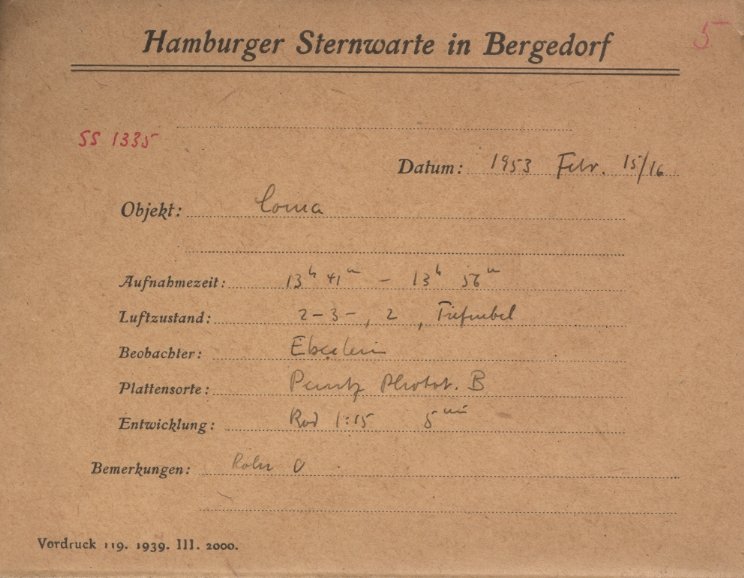 Hamburger Sternwarte in Bergedorf
5
SS 1335
Datum: 1953 Febr. 15/16
Objekt: Coma
Aufnahmezeit: 13h 41m – 13h 56m
Luftzustand: 2–3–, 2, Tiefnebel
Beobachter:
Plattensorte: Perutz Photot. B
Entwicklung: Rod 1:15 5 min
Bemerkungen: Rohr
Vordruck 119. 1939. III. 2000.